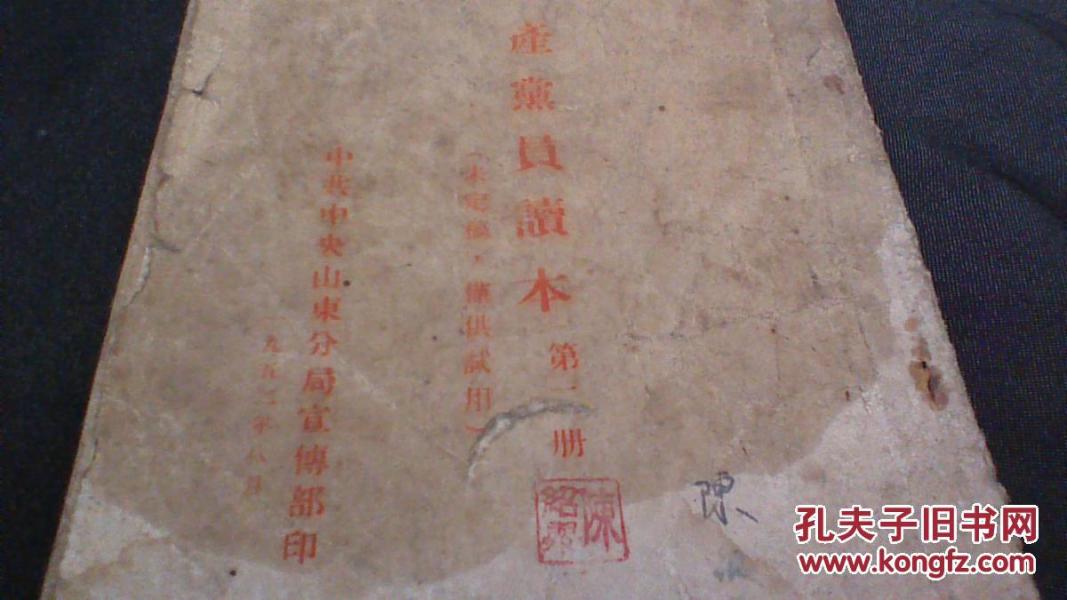 產黨員讀本 第一册
(未定稿,僅供試用)
中共中央山東分局宣傳部印
一九五二年八月
陳紹
陳
孔夫子旧书网
www.kongfz.com